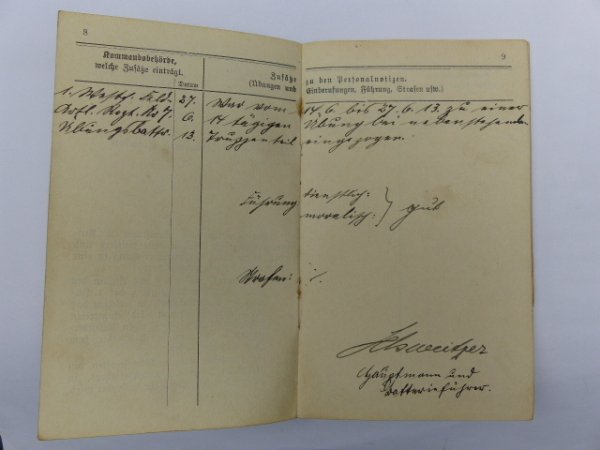 8
Kommandobehörde,
welche Zusätze einträgt.
Datum
Zusätze
(Übungen und
1. Westf. Feld. 27.
Artl. Regt. No 7. 6.
Übungsbattr. 13.
War vom
14 tägigen
Truppenteil
Führung
Strafen:
9
zu den Personalnotizen.
Einberufungen, Führung, Strafen usw.).
14.6. bis 27.6.13. zu einer
Übung bei nebenstehendem
eingezogen.
dienstlich: } gut
moralisch:
·/.
Hauptmann und
Batterieführer.